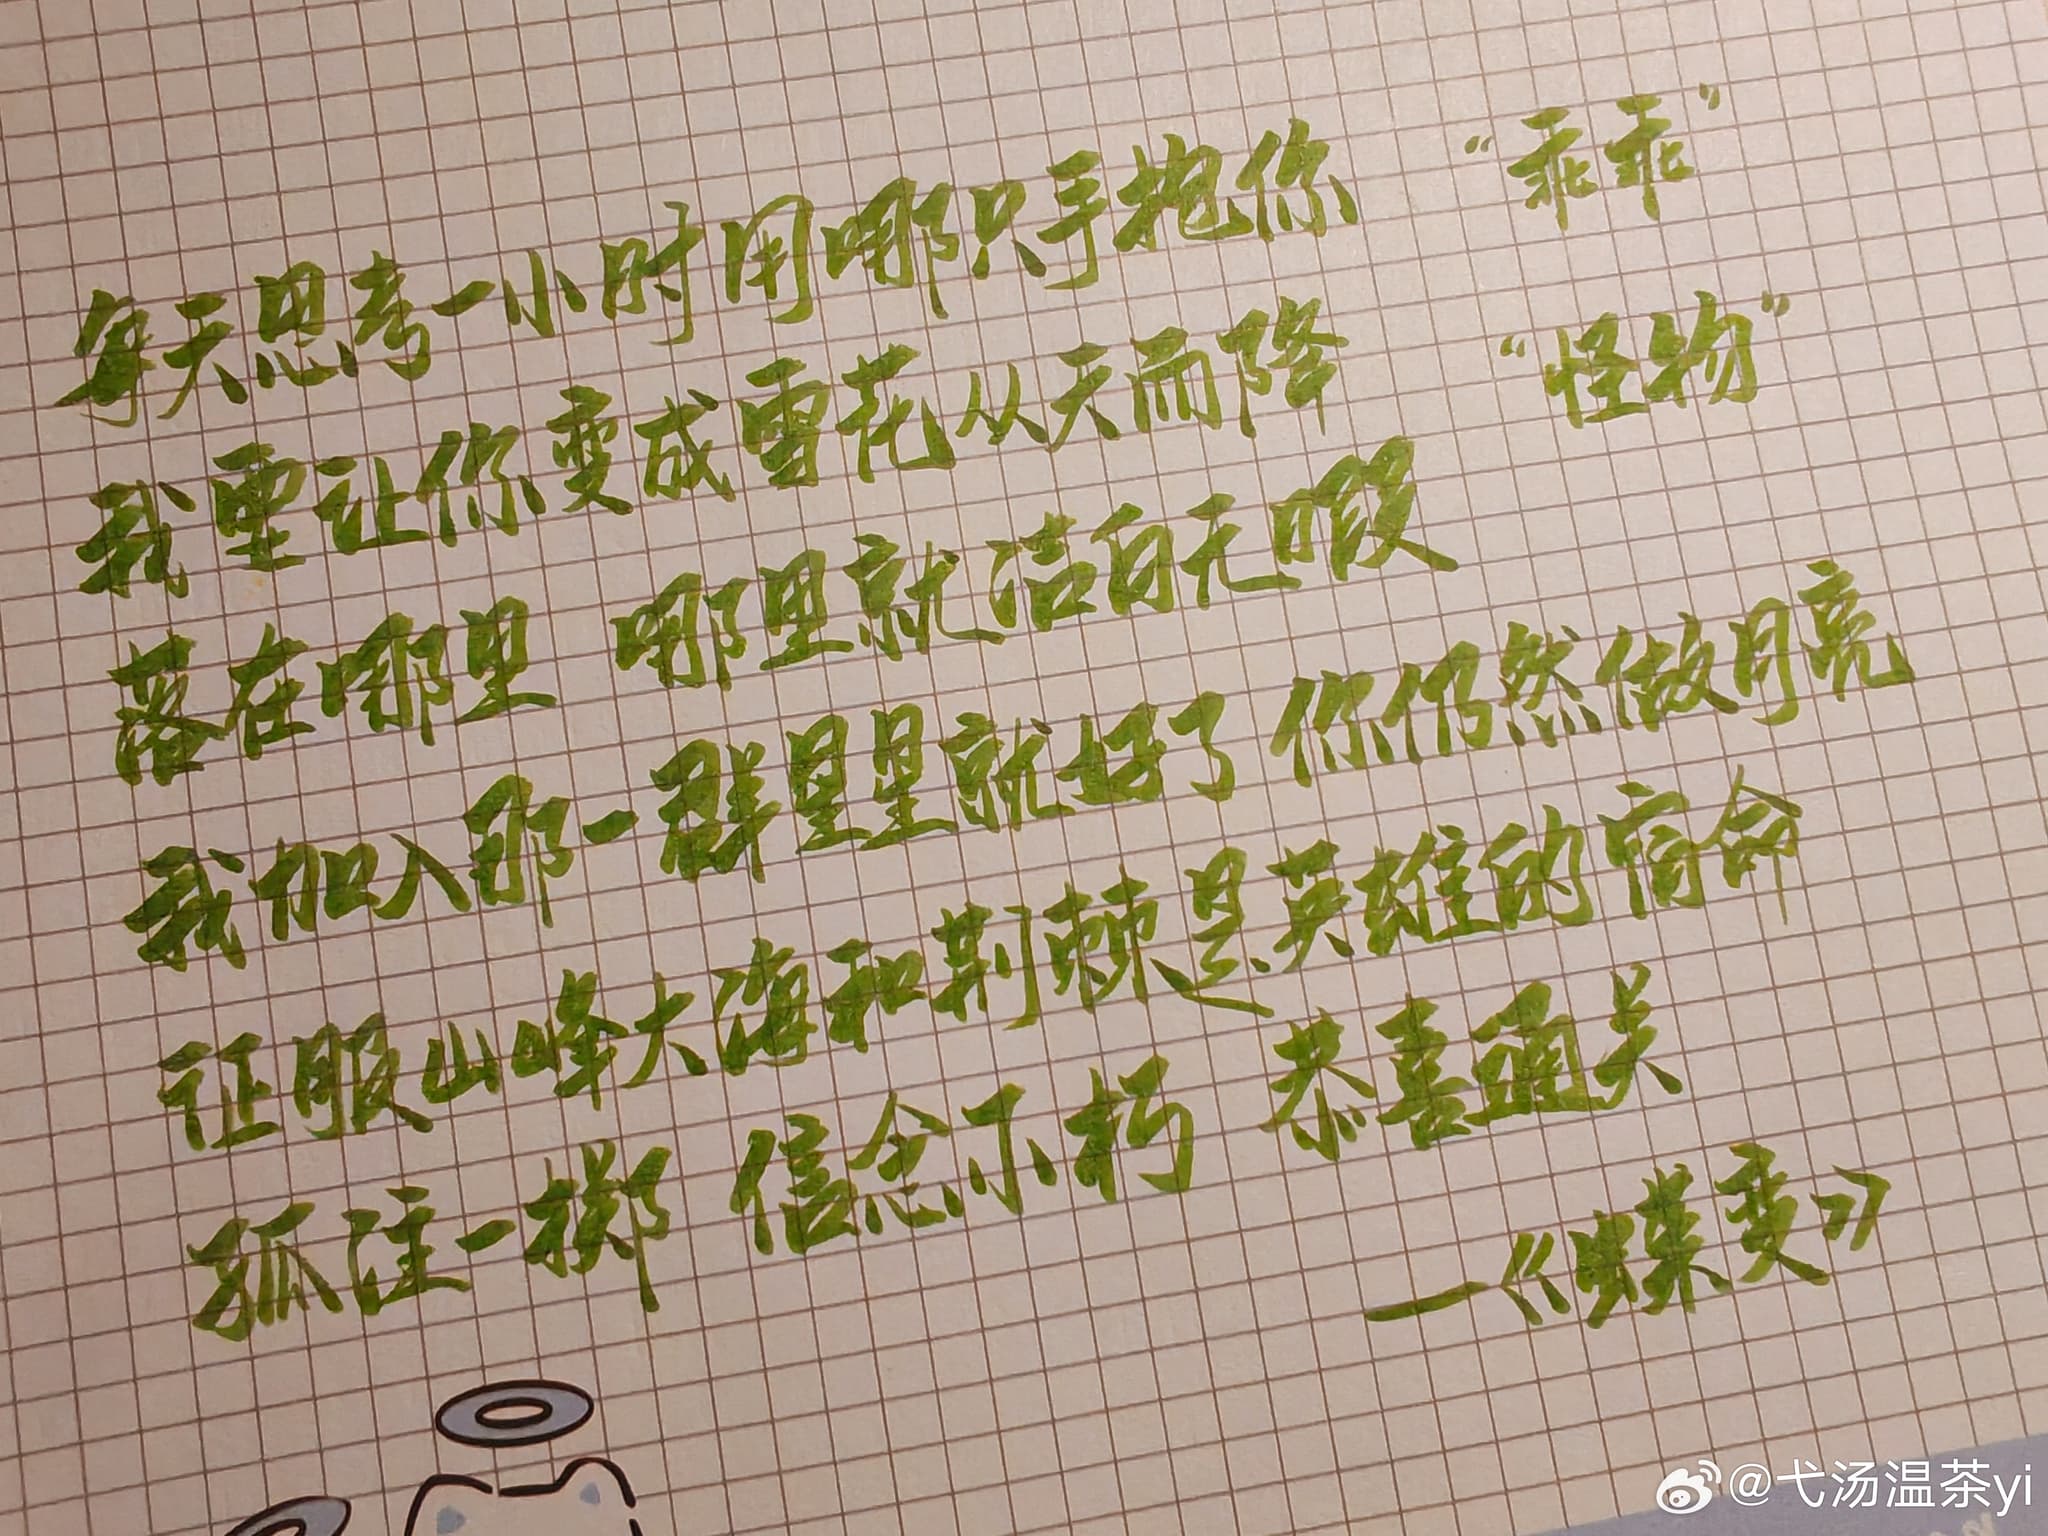 每天思考一小时用哪只手抱你 “乖乖”
我要让你变成雪花从天而降 “怪物”
落在哪里 哪里就洁白无暇
我加入那一群星星就好了 你仍然做月亮
征服山峰大海和荆棘是英雄的宿命
孤注一掷 信念不朽 恭喜通关
—《蝶变》
@弋汤温茶yi